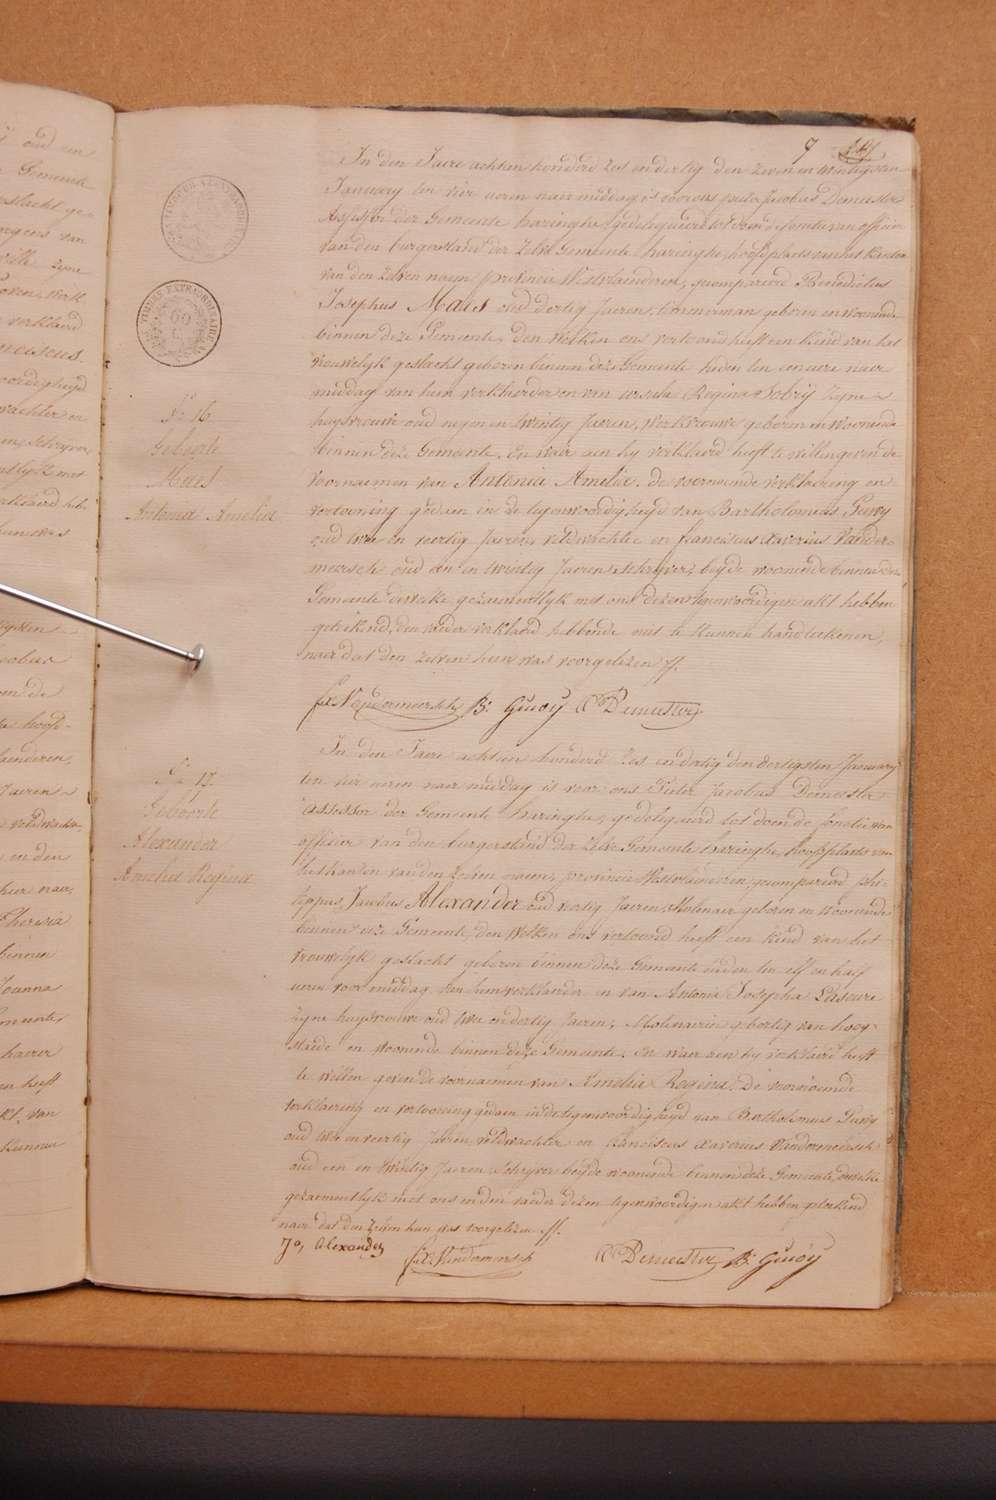 9
In den Jaere achtien honderd zes en dertig den zeven en twintigsten
January ten vier uren naer middag is voor ons pieter Jacobus Demester
Assessor der Gemeente haringhe, gedelegueerd tot doen de fonctie van officier
van den burgerstand der Zelve Gemeente haringhe, hoofdplaets van het Kanton
van den Zelven naem, provincie Westvlaenderen, gecompareerd Benedictus
Josephus Maes oud dertig Jaeren, timmerman geboren en woonende
binnen deze Gemeente, den welken ons vertoond heeft een kind van het
vrouwelyk geslacht geboren binnen deze Gemeente heden ten een ure naer
middag van hem verklaerder en van ursula Regina Sobry zyne
huysvrouwe oud negen en twintig Jaeren, Werkvrouwe geboren en Woonende
binnen deze Gemeente, en waer aen hy verklaerd heeft te willen geven de
voornaemen van Antonia Amelia. de voornoemde verklaering en
vertooning gedaen in de tegenwoordigheyd van Bartholomeus Guwy
oud twee en veertig Jaeren, veldwachter en franciscus xaverius Vander=
meersch oud een en twintig Jaeren schryver, beyde woonende binnen deze
Gemeente dewelke gezaementlyk met ons dezen tegenwoordigen akt hebben
geteekend, den vader verklaerd hebbende niet te kunnen handteekenen,
naer dat den zelven hun was voorgelezen ff.
f.x. Vandermeersch B: Guwy P Demester
TIMBRE EXTRAORDINAIRE
60
N.° 16
Geboorte
Maes
Antonia Amelia
In den Jaere achtien honderd zes en dertig den dertigsten January
ten vier uren naer middag is voor ons Pieter Jacobus Demester
assessor der Gemeente haringhe, gedelegueerd tot doen de fonctie van
officier van den burgerstand der zelve Gemeente haringhe, hoofdplaets van
het kanton van den zelven naem, provincie Westvlaenderen, gecompareerd phi-
lippus Jacobus Alexander oud veertig Jaeren, Molenaer geboren en Woonende
binnen deze Gemeente, den Welken ons vertoond heeft een kind van het
vrouwelyk geslacht geboren binnen deze Gemeente heden ten elf en half
uren voor middag van hem verklaerder en van Antonia Josepha Laseure
zyne huysvrouwe oud twee en dertig Jaeren, Molenaerin geboortig van hoog-
staede en woonende binnen deze Gemeente, en waer aen hy verklaerd heeft
te willen geven de voornaemen van Amelia Regina. De voornoemde
verklaering en vertooning gedaen in de tegenwoordigheyd van Bartholomeus Guwy
oud twee en veertig Jaeren veldwachter en franciscus xaverius Vandermeersch
oud een en twintig Jaeren Schryver beyde woonende binnen deze Gemeente, dewelke
gezaementlyk met ons en den vader dezen tegenwoordigen akt hebben geteekend
naer dat den zelven hun was voorgelezen ff.
Alexander
f.x. Vandermeersch P Demester B: Guwy
N.° 17.
Geboorte
Alexander
Amelia Regina